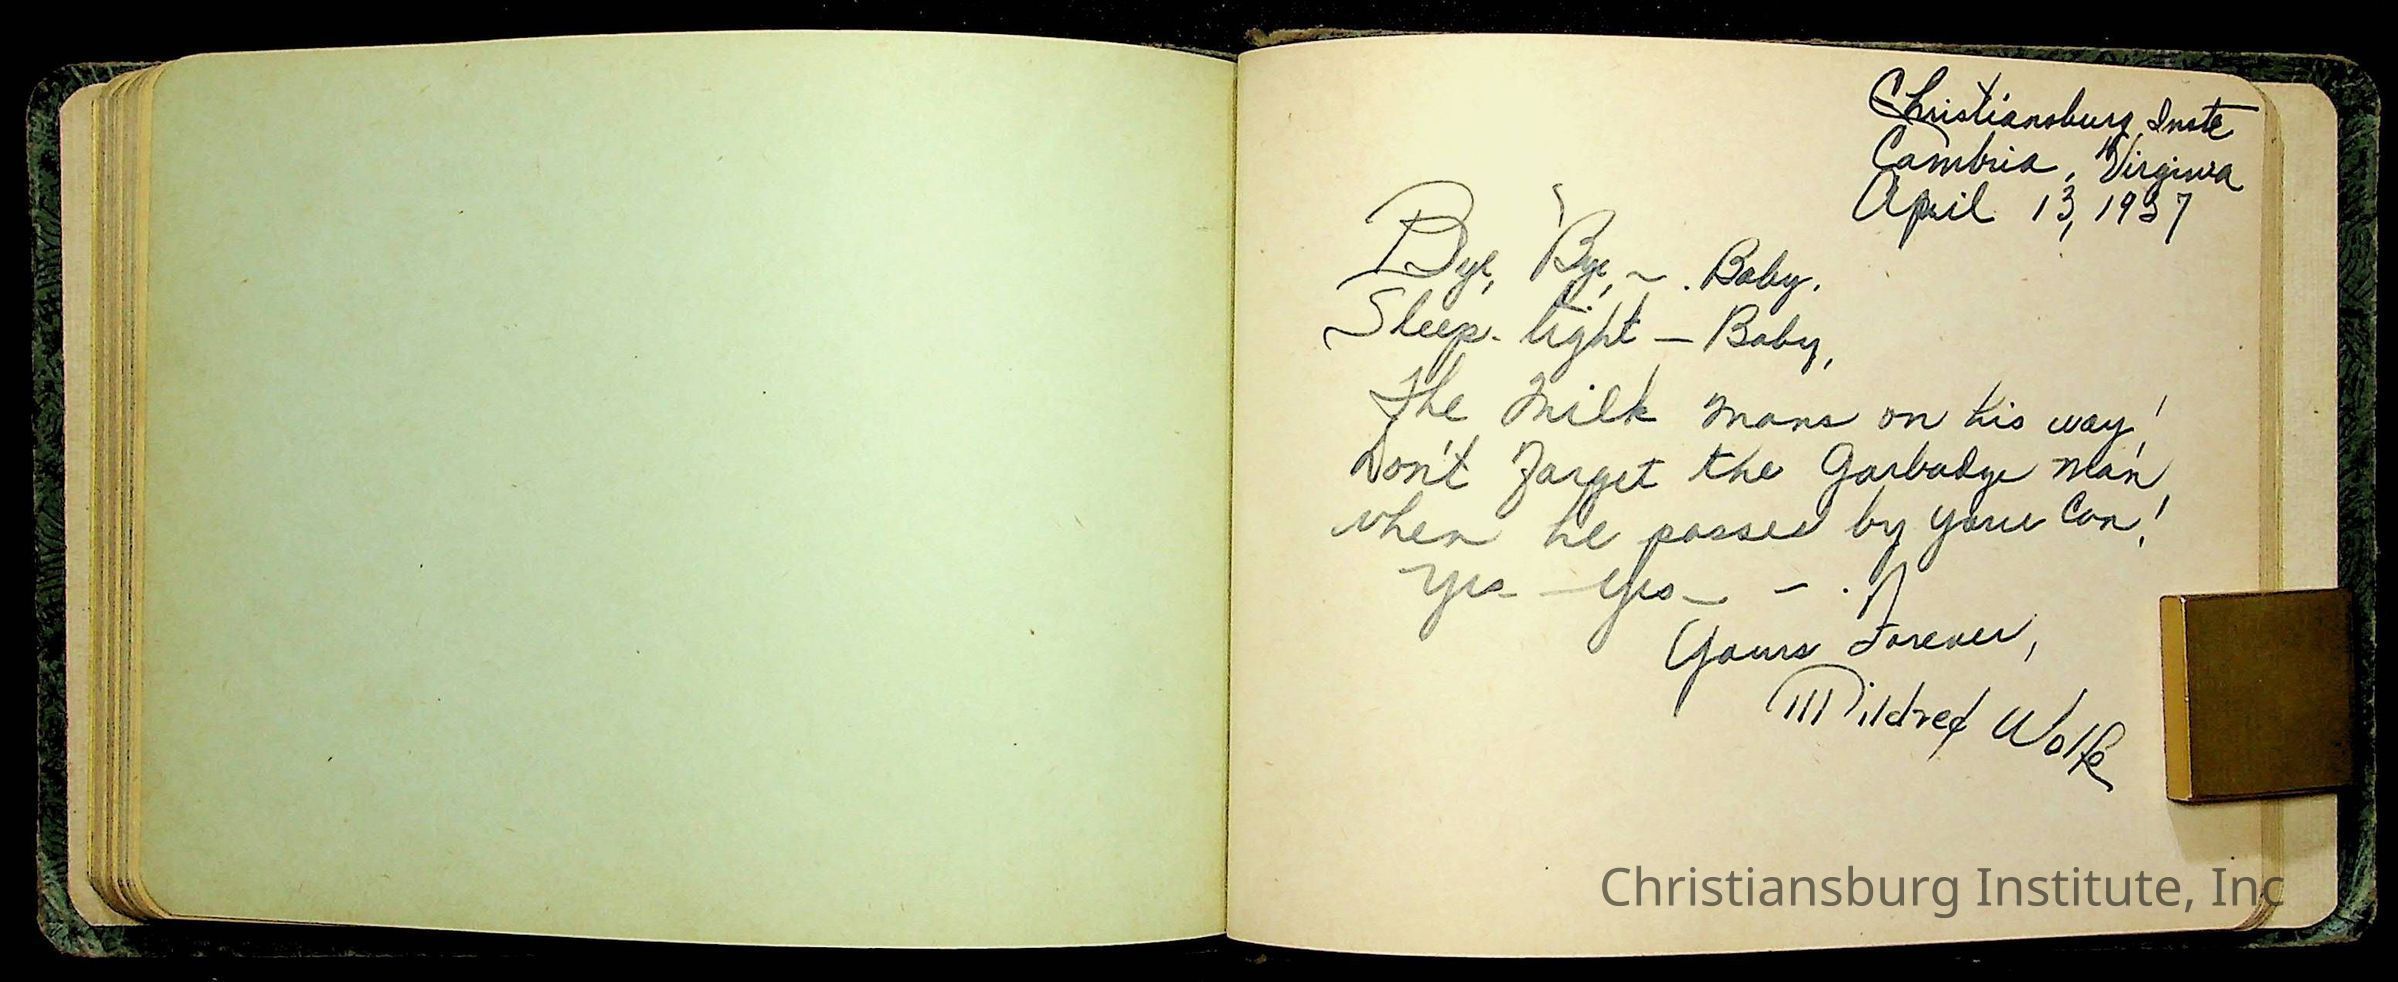 Christiansburg Inste
Cambria, Virginia
April 13, 1937
Bye, Bye, ~ . Baby.
Sleep - tight — Baby,
The milk mans on his way!
Don't Forget the Garbadge man
when he passes by your Can!
Yes — Yes — — .
Yours Forever,
Mildred Wolfe
Christiansburg Institute, Inc